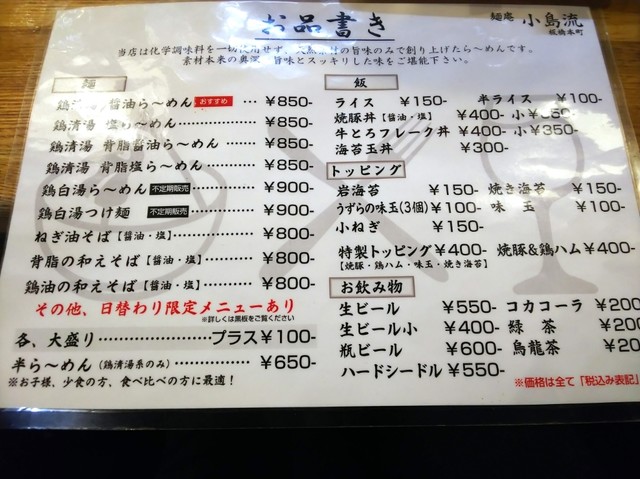 お品書き
麺庵 小島流
板橋本町
当店は化学調味料を一切使用せず、天然素材の旨味のみで創り上げたら〜めんです。
素材本来の奥深い旨味とスッキリした味をご堪能下さい。
麺
鶏清湯 醤油ら〜めん おすすめ … ¥850-
鶏清湯 塩ら〜めん ………… ¥850-
鶏清湯 背脂醤油ら〜めん …… ¥850-
鶏清湯 背脂塩ら〜めん ……… ¥850-
鶏白湯ら〜めん 不定期販売 …… ¥900-
鶏白湯つけ麺 不定期販売 …… ¥900-
ねぎ油そば【醤油・塩】……… ¥800-
背脂の和えそば【醤油・塩】… ¥800-
鶏油の和えそば【醤油・塩】… ¥800-
その他、日替わり限定メニューあり
※詳しくは黒板をご覧ください
各、大盛り……………………プラス¥100-
半ら〜めん(鶏清湯系のみ)…………… ¥650-
※お子様、少食の方、食べ比べの方に最適!
飯
ライス ¥150- 半ライス ¥100-
焼豚丼【醤油・塩】 ¥400- 小
牛とろフレーク丼 ¥400- 小¥350-
海苔玉丼 ¥300-
トッピング
岩海苔 ¥150- 焼き海苔 ¥150-
うずらの味玉(3個) ¥100- 味玉 ¥100-
小ねぎ ¥150-
特製トッピング¥400- 焼豚&鶏ハム¥400-
【焼豚・鶏ハム・味玉・焼き海苔】
お飲み物
生ビール ¥550- コカコーラ ¥200
生ビール小 ¥400- 緑茶 ¥200
瓶ビール ¥600- 烏龍茶 ¥200
ハードシードル ¥550-
※価格は全て「税込み表記